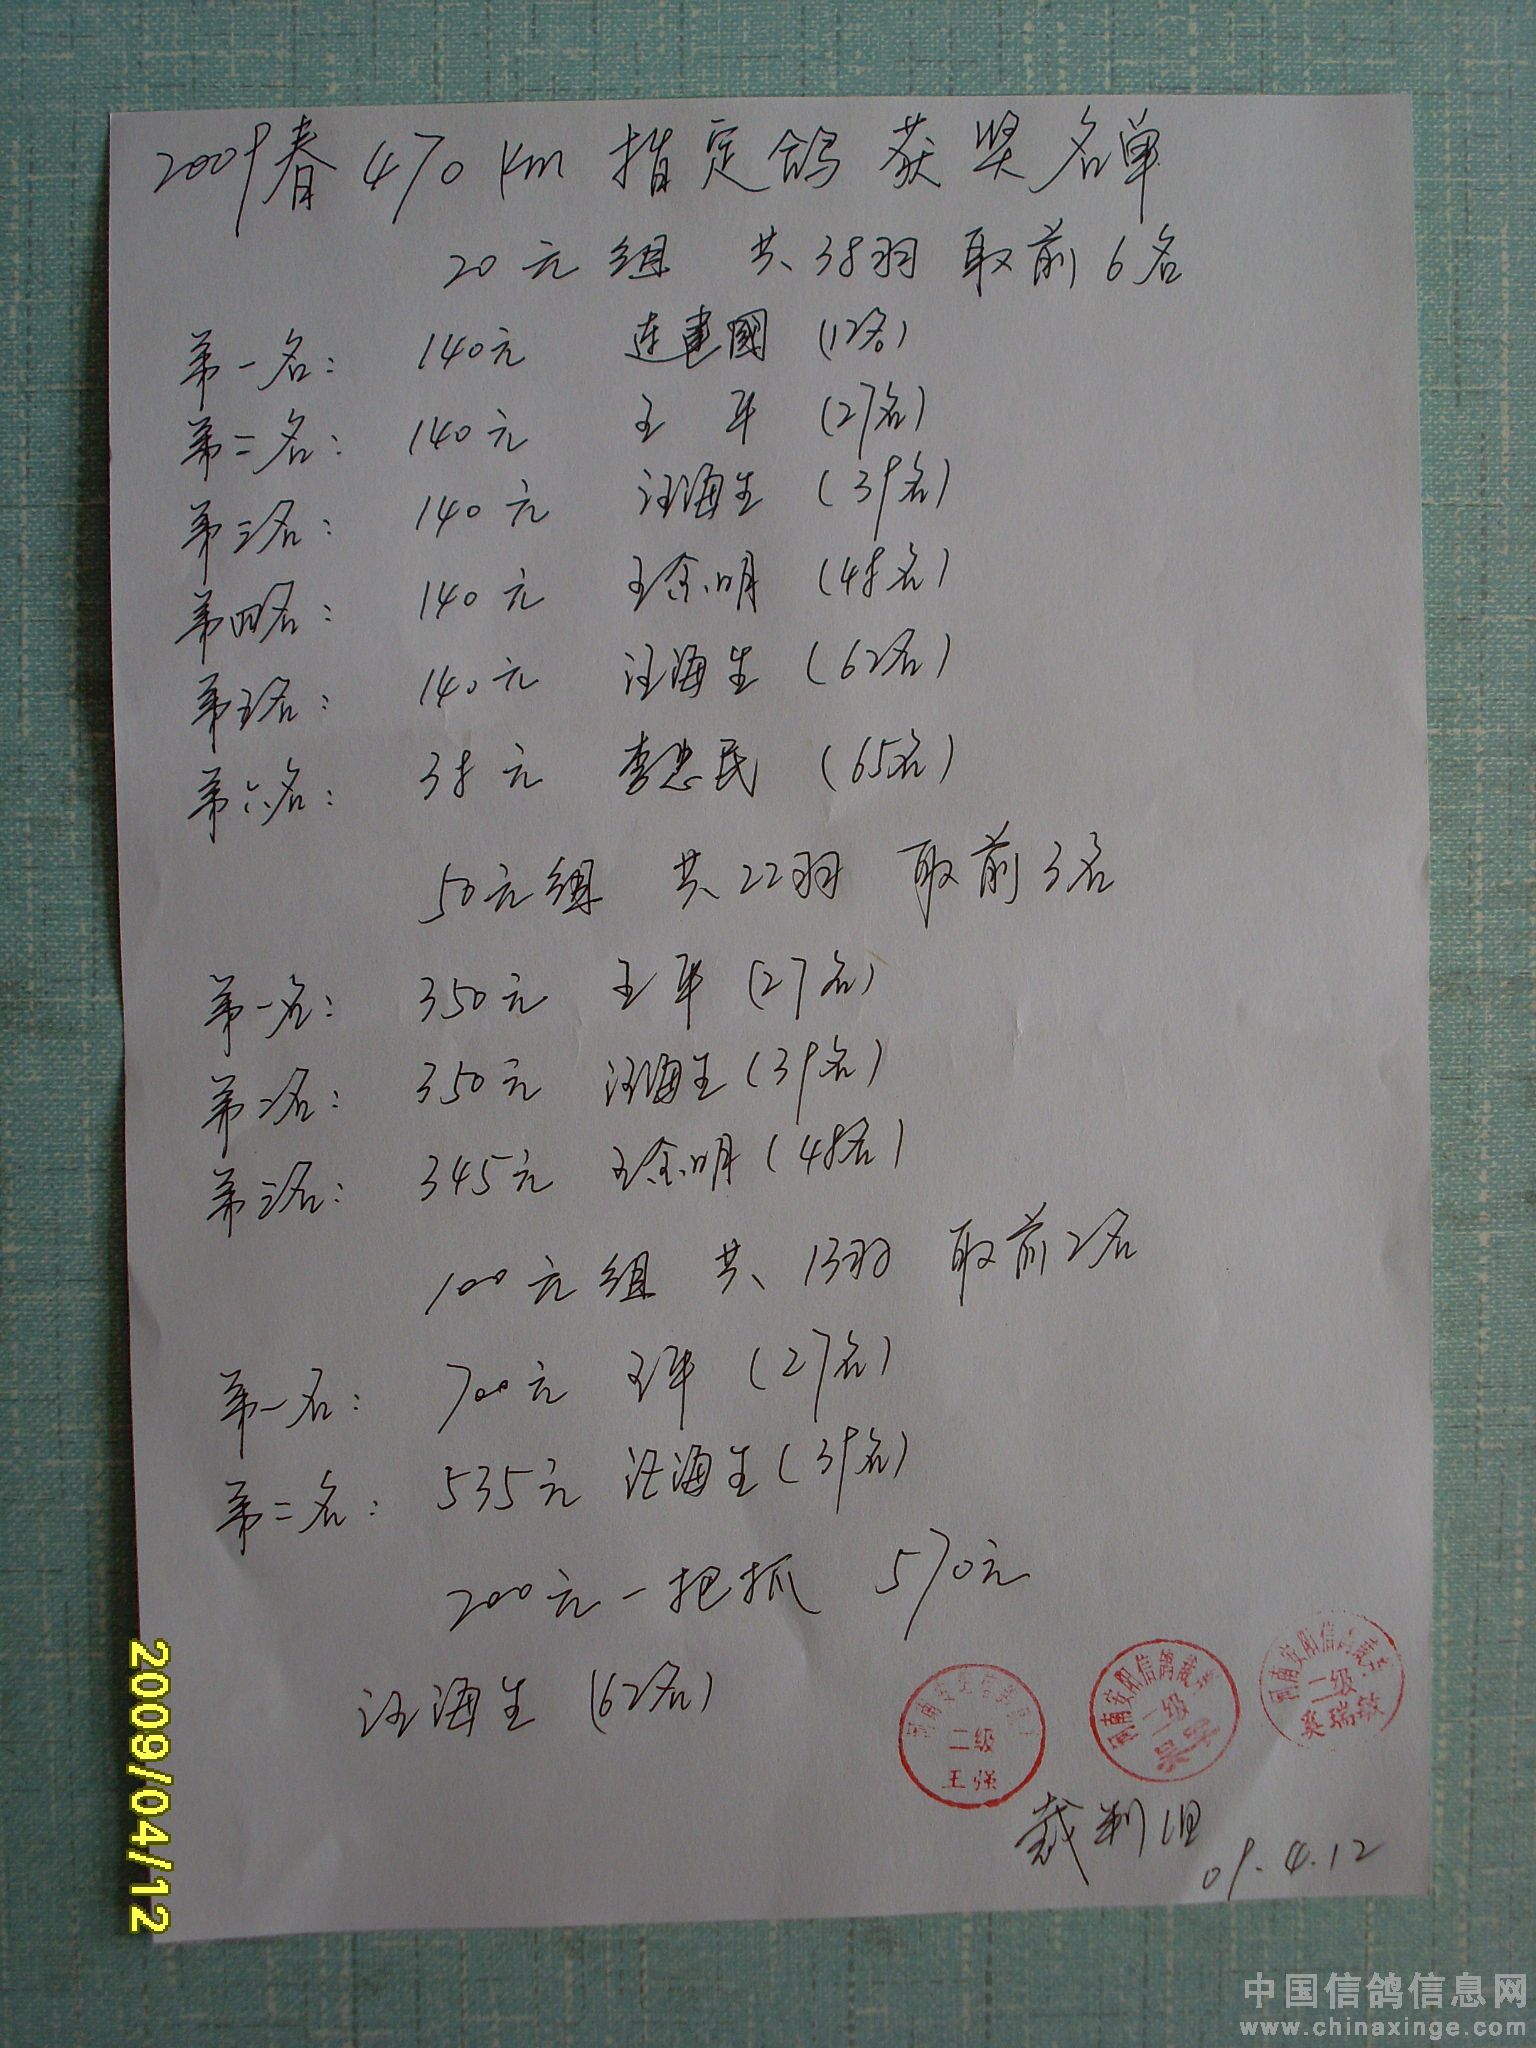 2009春470Km指定鸽获奖名单
20元组 共38羽 取前6名
第一名: 140元 连建國 (12名)
第二名: 140元 王军 (27名)
第三名: 140元 汪海生 (39名)
第四名: 140元 王金明 (48名)
第五名: 140元 汪海生 (62名)
第六名: 38元 李忠民 (65名)
50元组 共22羽 取前3名
第一名: 350元 王军 (27名)
第二名: 350元 汪海生 (39名)
第三名: 345元 王金明 (48名)
100元组 共13羽 取前2名
第一名: 700元 王军 (27名)
第二名: 535元 汪海生 (39名)
200元一把抓 570元
汪海生 (62名)
河南安阳信鸽裁判
二级
王强
河南安阳信鸽裁判
二级
河南安阳信鸽裁判
二级
瑞敏
裁判组
09.4.12
2009/04/12
中国信鸽信息网
www.chinaxinge.com